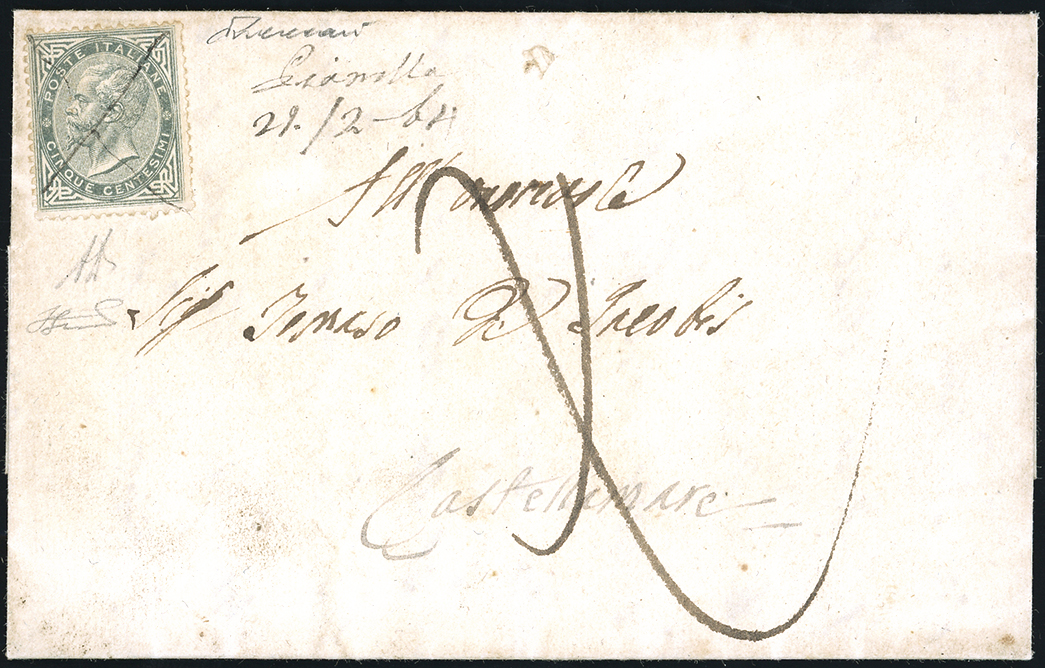 POSTE ITALIANE
CINQUE CENTESIMI
Pianella
21/2-64
All'Onorevole
Sig Tomaso De Jacobis
Castellamare